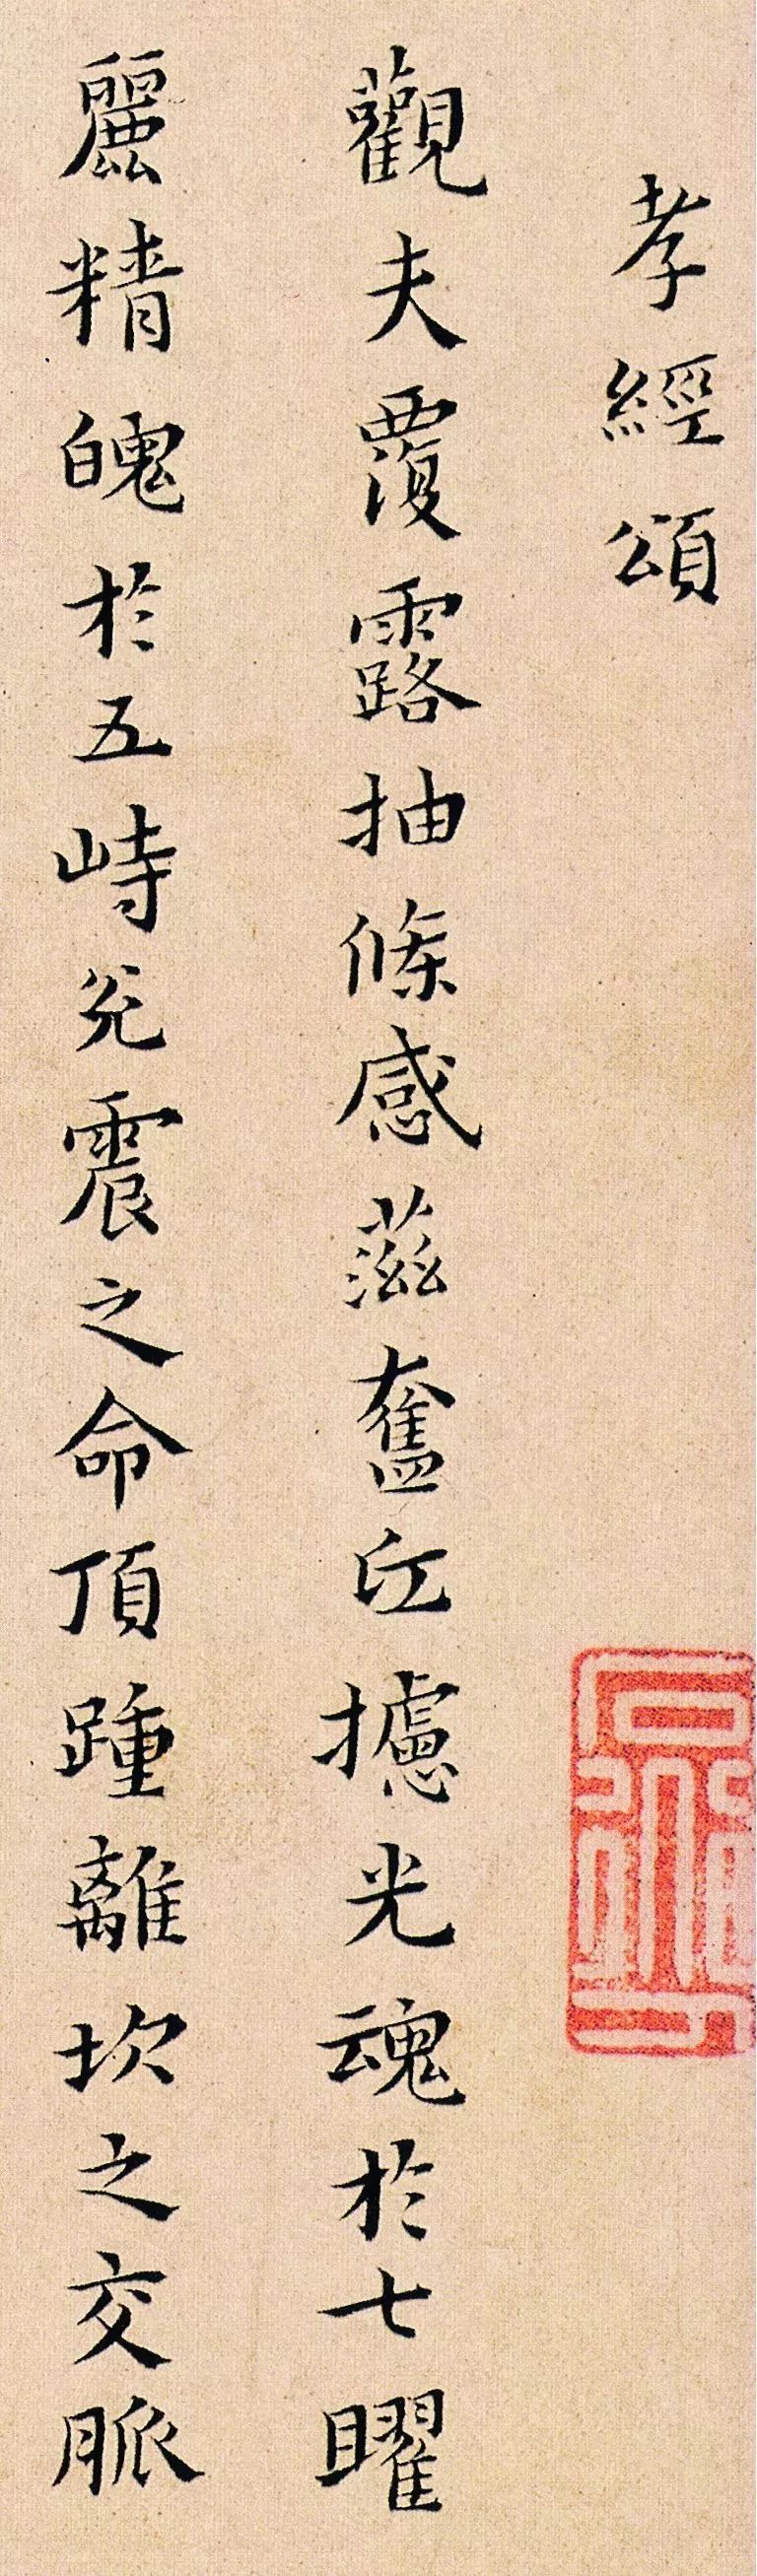 孝經頌
觀夫覆露抽條感蕬奮丘攄光魂於七曜
麗精魄於五峙兊震之命頂踵離坎之交脈